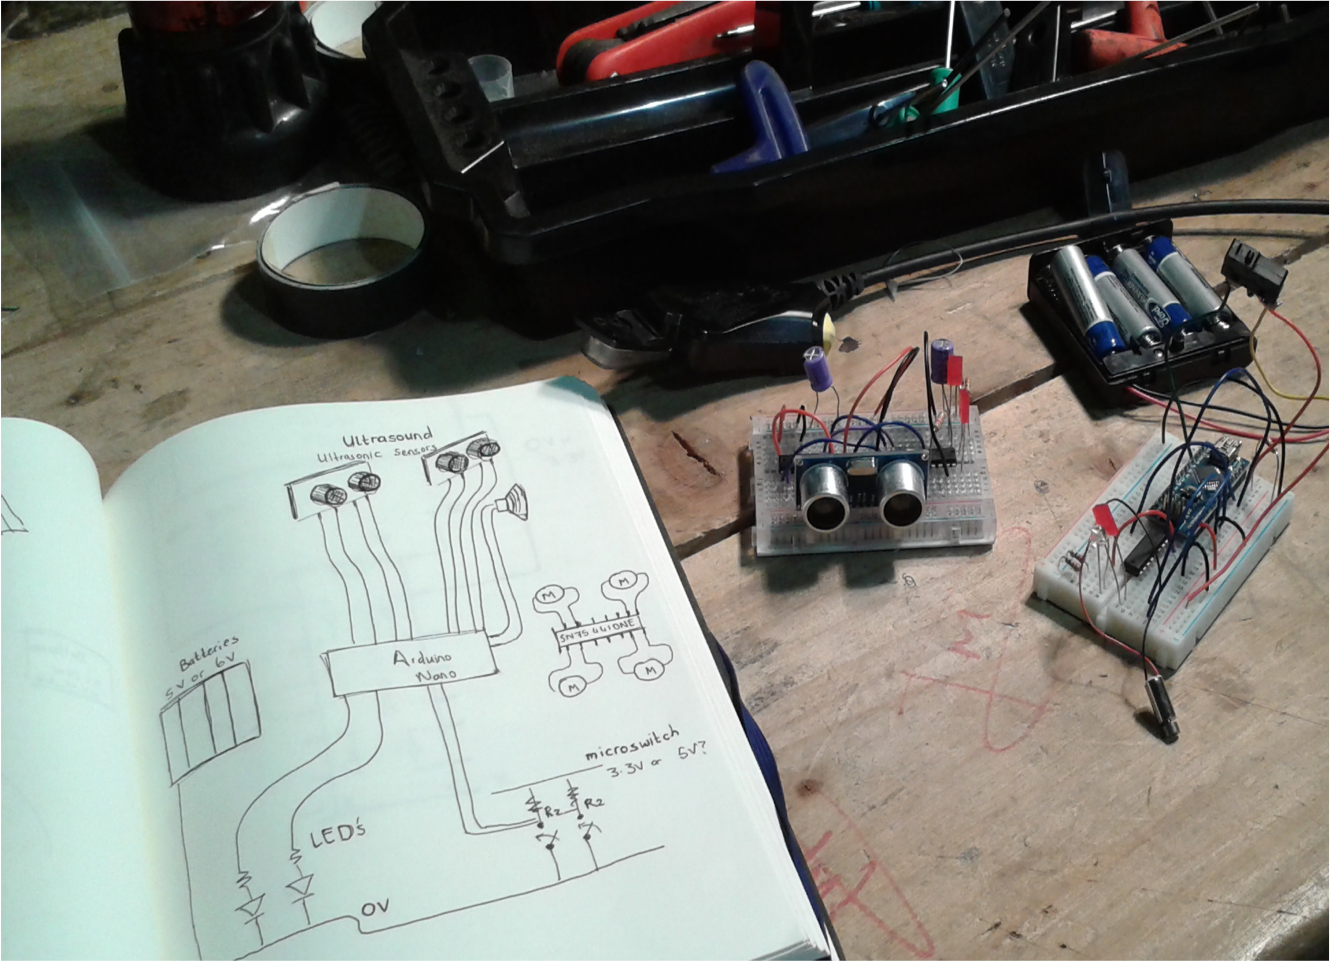 Ultrasound
Ultrasonic Sensors
M
M
SN754410NE
M
M
Batteries
5V or 6V
Arduino
Nano
microswitch
3.3V or 5V?
R2
R2
LED's
0V